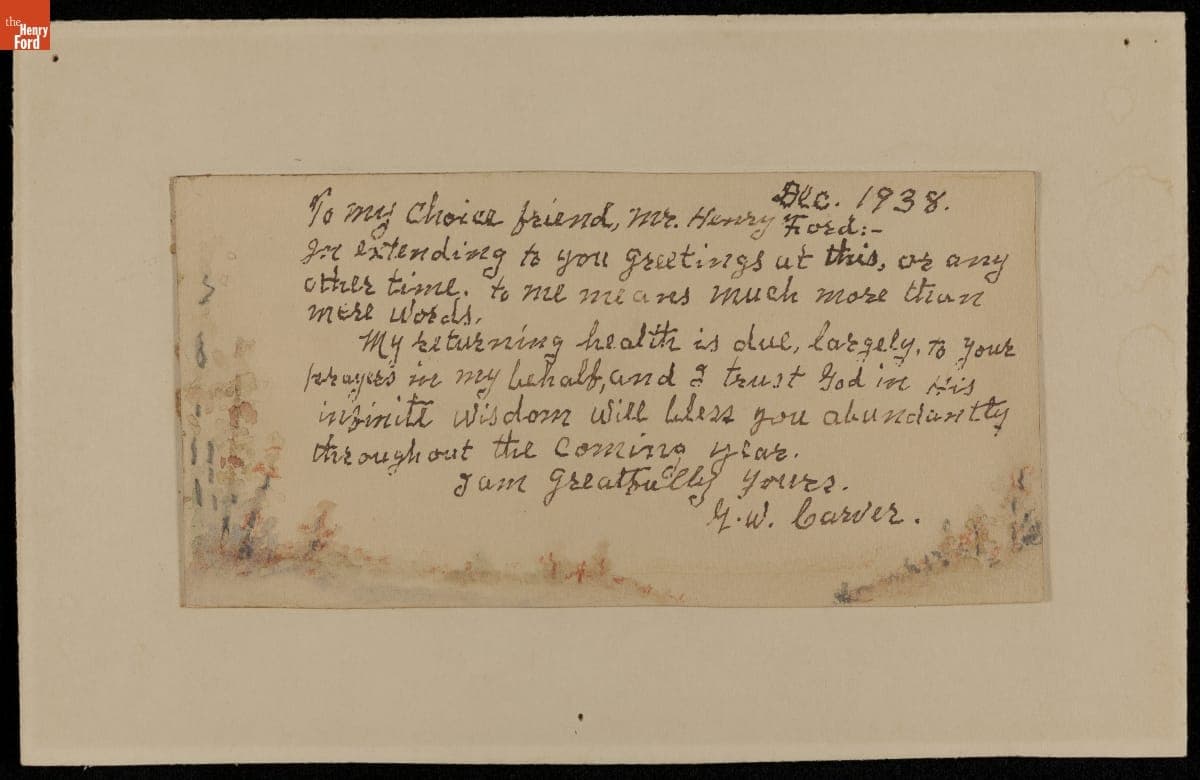 the
Henry
Ford
Dec. 1938.
To my choice friend, Mr. Henry Ford:-
In extending to you greetings at this, or any
other time. to me means much more than
mere words.
My returning health is due, largely, to your
prayers in my behalf, and I trust God in His
infinite wisdom will bless you abundantly
throughout the coming year.
I am greatfully yours.
G.W. Carver.